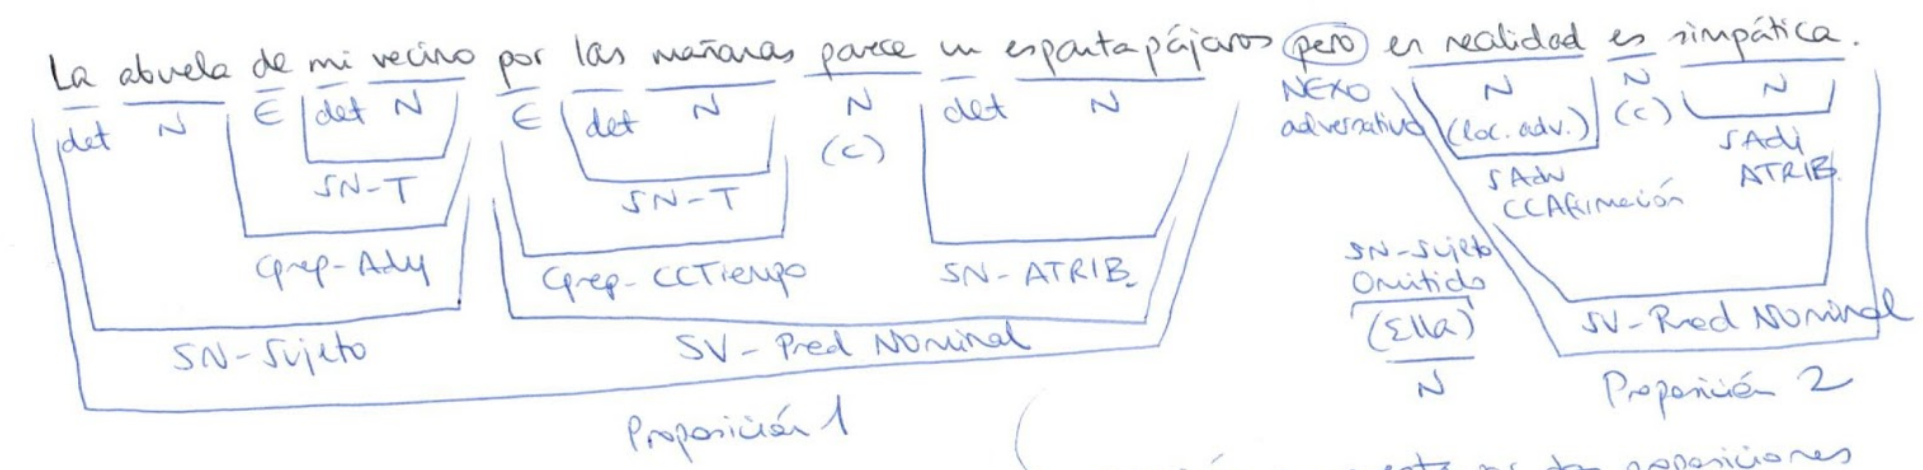 La abuela de mi vecino por las mañanas parece un espantapájaros pero en realidad es simpática.
det N E det N E det N N det N NEXO N N N
(c) adversativo (loc. adv.) (c) SAdj
SN-T SN-T SAdv ATRIB.
CCAfirmación
Gprep-Ady Gprep-CCTiempo SN-ATRIB. SN-Sujeto
Omitido
SN-Sujeto SV-Pred Nominal (Ella) SV-Pred Nominal
N
Proposición 1 Proposición 2
proposiciones